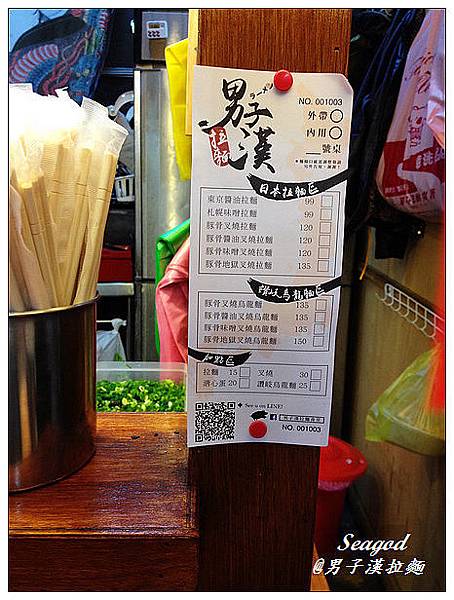 男子漢
拉麵
NO. 001003
外帶○
內用○
號桌
日本拉麵區
東京醬油拉麵 99
札幌味噌拉麵 99
豚骨叉燒拉麵 120
豚骨醬油叉燒拉麵 120
豚骨味噌叉燒拉麵 120
豚骨地獄叉燒拉麵 135
讚岐烏龍麵區
豚骨叉燒烏龍麵 135
豚骨醬油叉燒烏龍麵 135
豚骨味噌叉燒烏龍麵 135
豚骨地獄叉燒烏龍麵 150
加點區
拉麵 15 叉燒 30
溏心蛋 20 讚岐烏龍麵 25
See u on LINE!
男子漢拉麵食堂
NO. 001003
Seagod
@男子漢拉麵